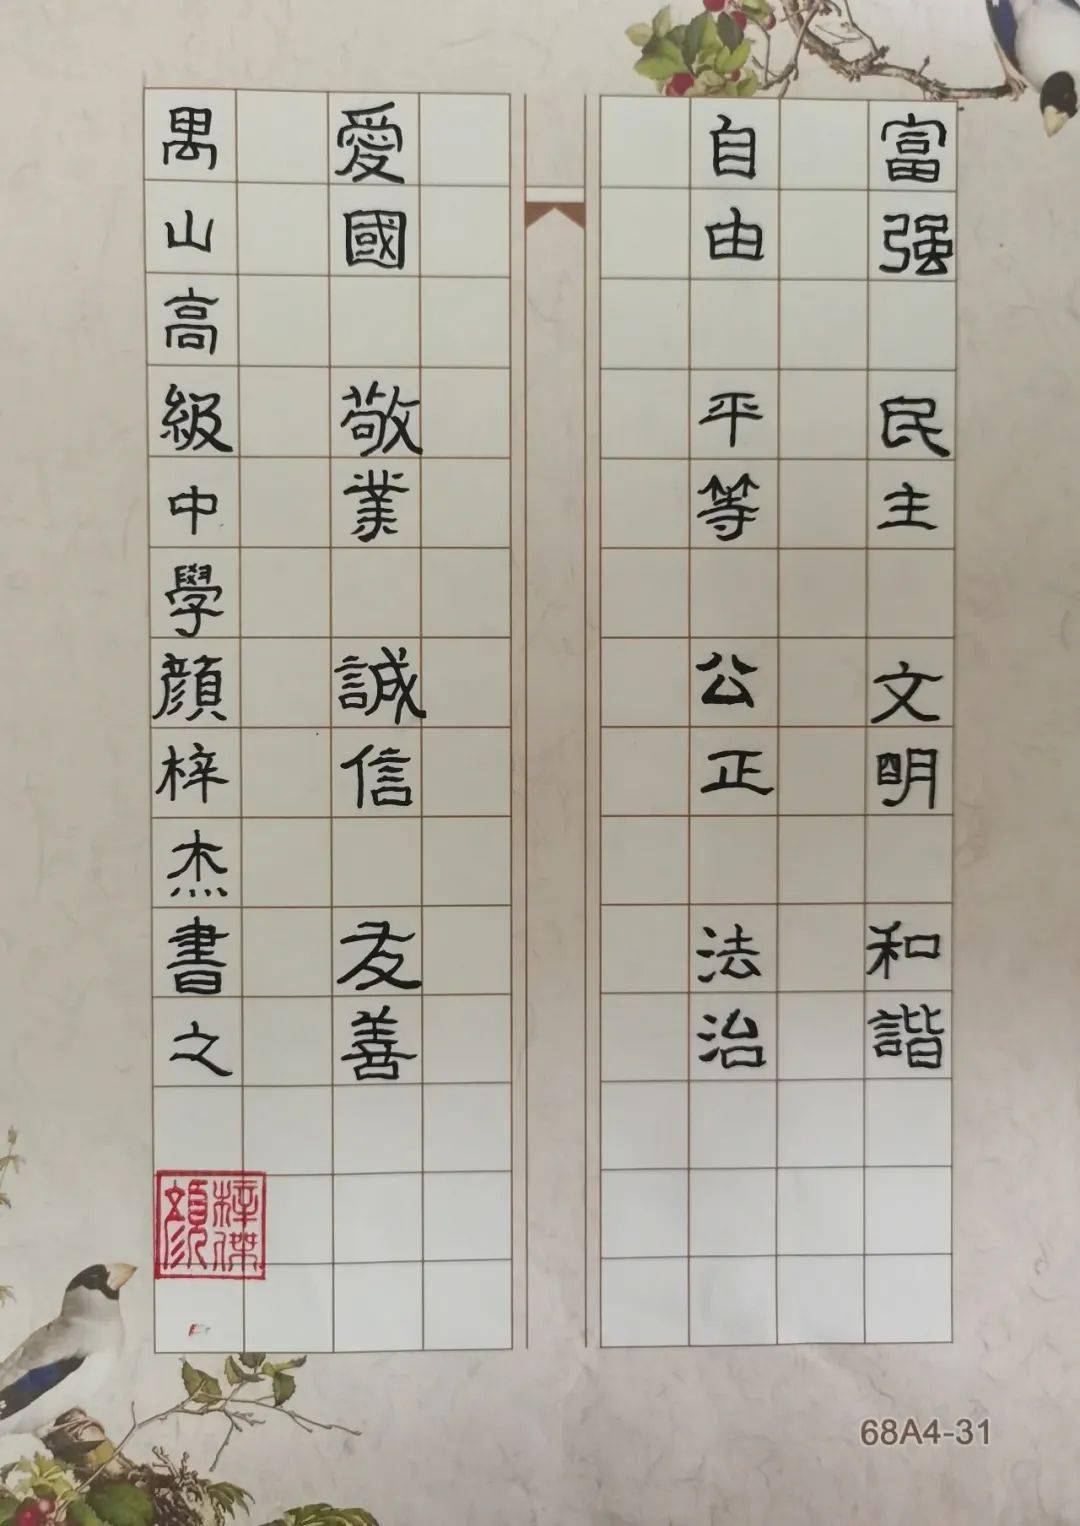 富强 民主 文明 和諧
自由 平等 公正 法治
愛國 敬業 誠信 友善
禺山高級中學顔梓杰書之
顔梓傑
68A4-31